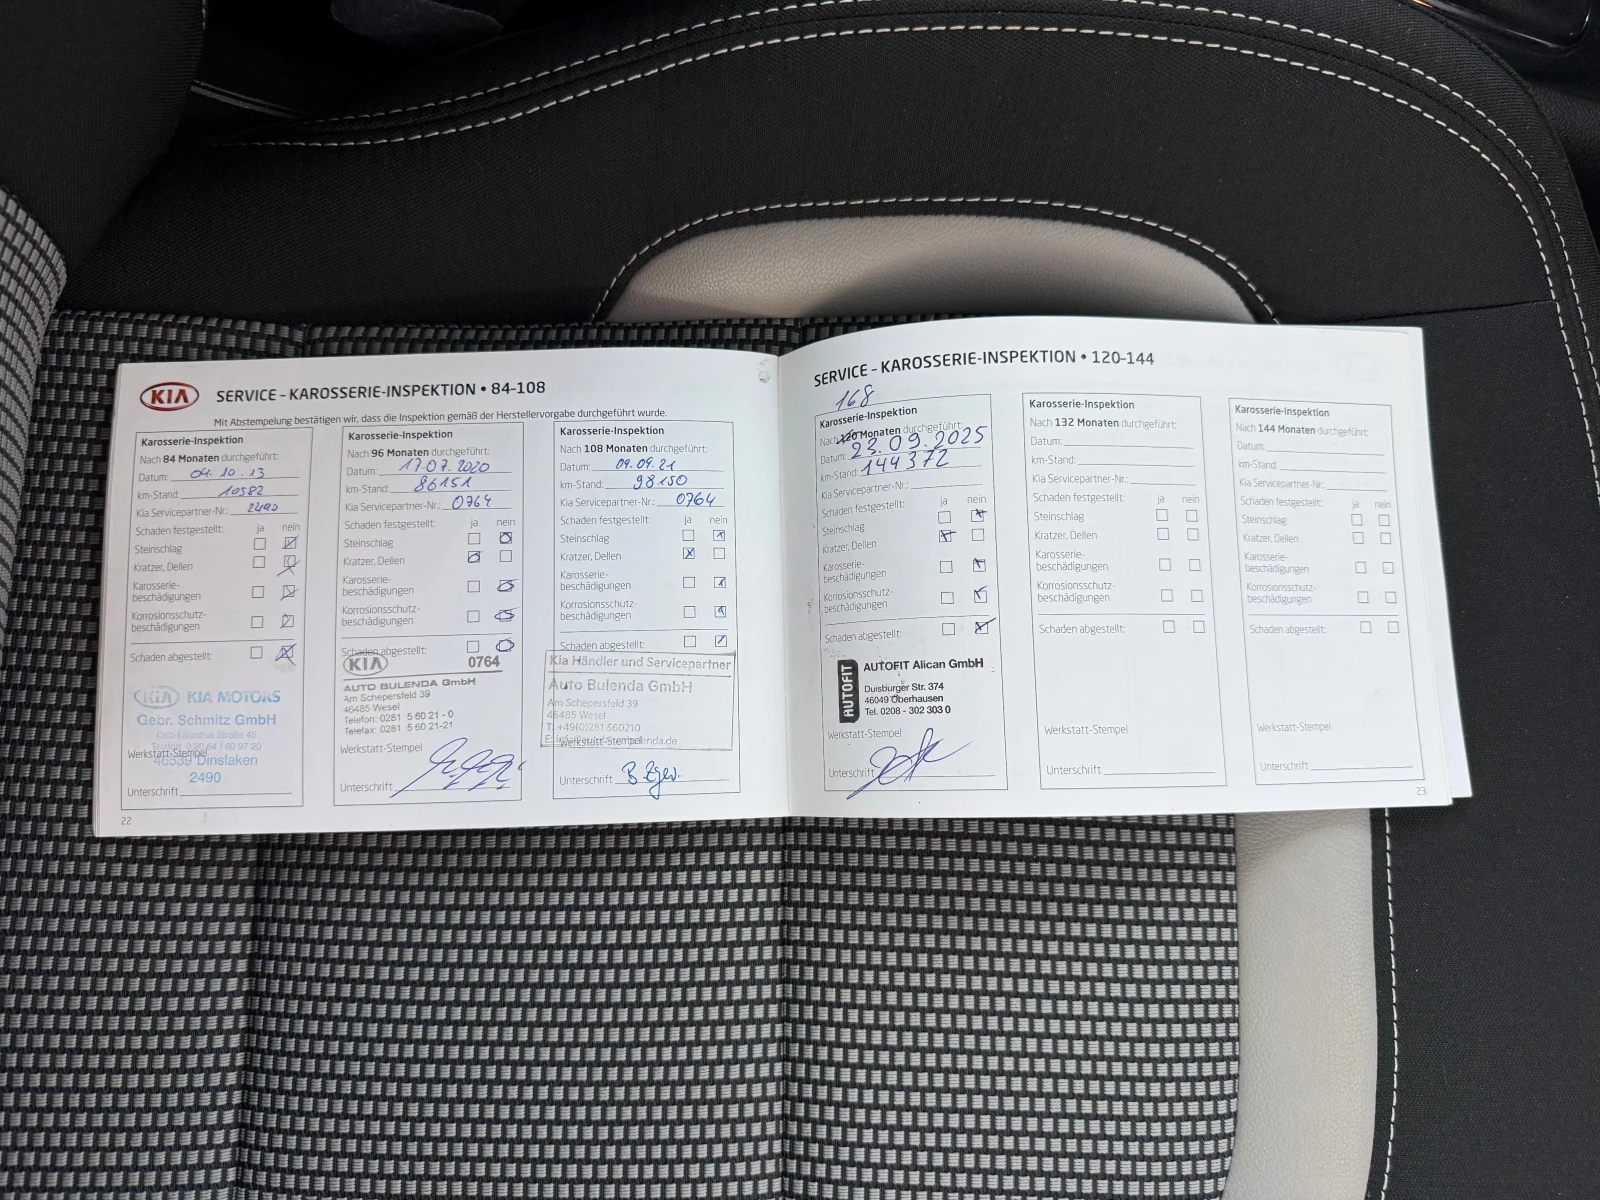 KIA SERVICE – KAROSSERIE-INSPEKTION • 84-108
Mit Abstempelung bestätigen wir, dass die Inspektion gemäß der Herstellervorgabe durchgeführt wurde.
Karosserie-Inspektion
Nach 84 Monaten durchgeführt:
Datum: 04.10.13
km-Stand: 10582
Kia Servicepartner-Nr.: 2490
Schaden festgestellt: ja nein
Steinschlag
Kratzer, Dellen
Karosserie-
beschädigungen
Korrosionsschutz-
beschädigungen
Schaden abgestellt:
KIA KIA MOTORS
Gebr. Schmitz GmbH
Otto-Lilienthal-Straße 45
Telefon 0 20 64 / 60 97 20
Werkstatt-Stempel
46539 Dinslaken
2490
Unterschrift
22
Karosserie-Inspektion
Nach 96 Monaten durchgeführt:
Datum: 17.07.2020
km-Stand: 86151
Kia Servicepartner-Nr.: 0764
Schaden festgestellt: ja nein
Steinschlag
Kratzer, Dellen
Karosserie-
beschädigungen
Korrosionsschutz-
beschädigungen
Schaden abgestellt:
KIA 0764
AUTO BULENDA GmbH
Am Schepersfeld 39
46485 Wesel
Telefon: 0281 5 60 21 - 0
Telefax: 0281 5 60 21-21
Werkstatt-Stempel
Unterschrift
Karosserie-Inspektion
Nach 108 Monaten durchgeführt:
Datum: 09.09.21
km-Stand: 98150
Kia Servicepartner-Nr.: 0764
Schaden festgestellt: ja nein
Steinschlag
Kratzer, Dellen
Karosserie-
beschädigungen
Korrosionsschutz-
beschädigungen
Schaden abgestellt:
Kia Händler und Servicepartner
Auto Bulenda GmbH
Am Schepersfeld 39
46485 Wesel
T: +49(0)281 560210
Werkstatt-Stempel
Unterschrift
SERVICE – KAROSSERIE-INSPEKTION • 120-144
168
Karosserie-Inspektion
Nach 120 Monaten durchgeführt:
Datum: 23.09.2025
km-Stand: 144372
Kia Servicepartner-Nr.:
Schaden festgestellt: ja nein
Steinschlag
Kratzer, Dellen
Karosserie-
beschädigungen
Korrosionsschutz-
beschädigungen
Schaden abgestellt:
AUTOFIT AUTOFIT Alican GmbH
Duisburger Str. 374
46049 Oberhausen
Tel. 0208 - 302 303 0
Werkstatt-Stempel
Unterschrift
Karosserie-Inspektion
Nach 132 Monaten durchgeführt:
Datum:
km-Stand:
Kia Servicepartner-Nr.:
Schaden festgestellt: ja nein
Steinschlag
Kratzer, Dellen
Karosserie-
beschädigungen
Korrosionsschutz-
beschädigungen
Schaden abgestellt:
Werkstatt-Stempel
Unterschrift
Karosserie-Inspektion
Nach 144 Monaten durchgeführt:
Datum:
km-Stand:
Kia Servicepartner-Nr.:
Schaden festgestellt: ja nein
Steinschlag
Kratzer, Dellen
Karosserie-
beschädigungen
Korrosionsschutz-
beschädigungen
Schaden abgestellt:
Werkstatt-Stempel
Unterschrift
23